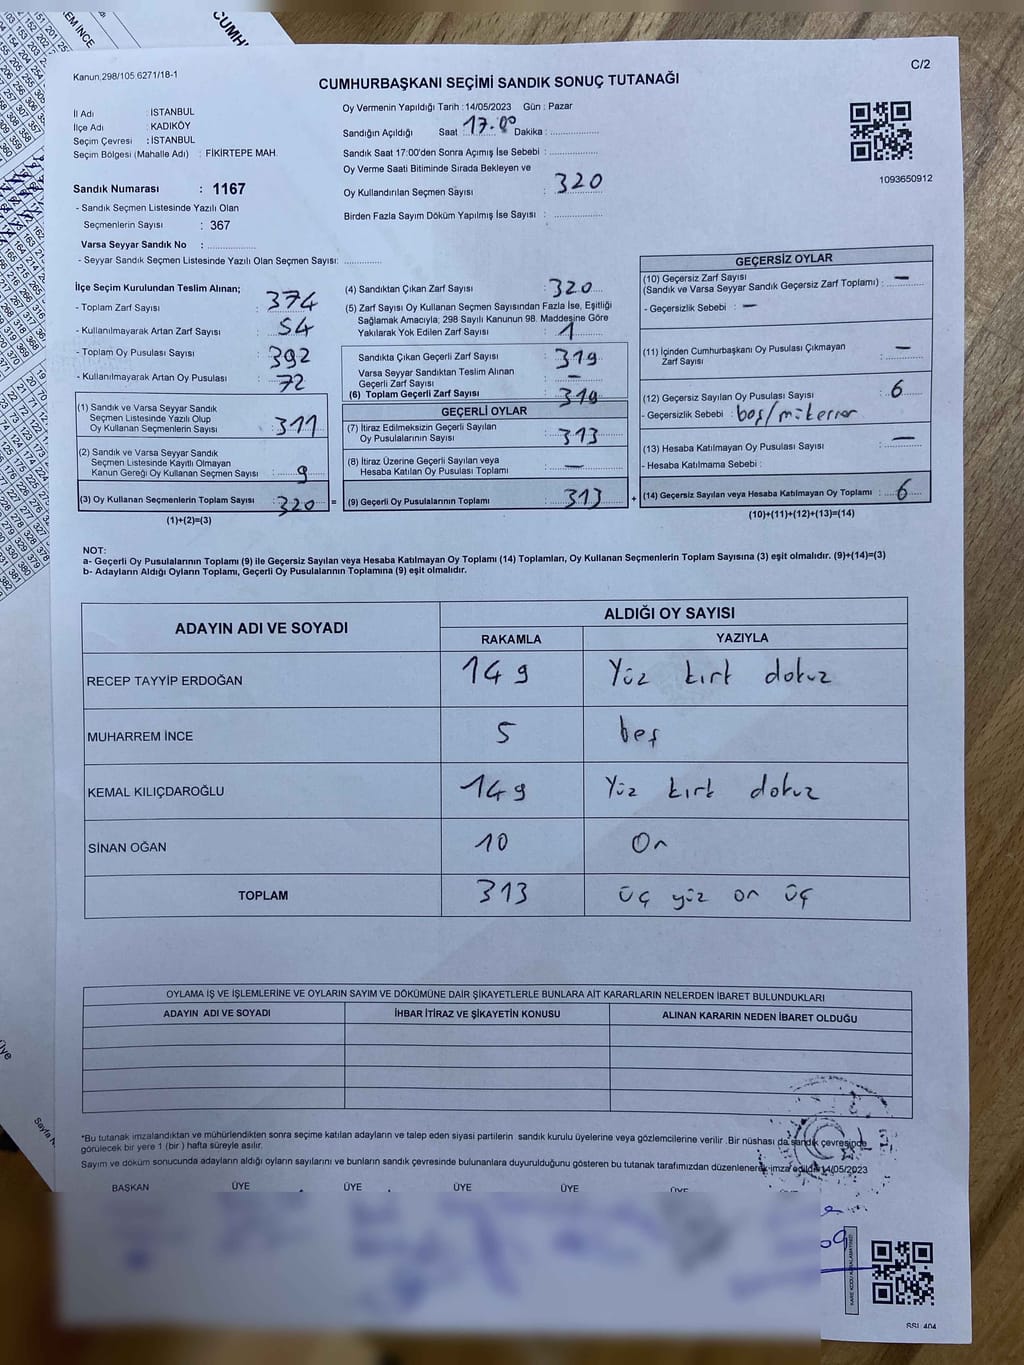 EM INCE
CUMH
Kanun,298/105.6271/18-1
C/2
CUMHURBAŞKANI SEÇİMİ SANDIK SONUÇ TUTANAĞI
İl Adı : İSTANBUL
İlçe Adı : KADIKÖY
Seçim Çevresi : İSTANBUL
Seçim Bölgesi (Mahalle Adı) : FİKİRTEPE MAH.
Oy Vermenin Yapıldığı Tarih :14/05/2023 Gün : Pazar
Sandığın Açıldığı Saat :17.00 Dakika :
Sandık Saat 17:00'den Sonra Açımış İse Sebebi :
Oy Verme Saati Bitiminde Sırada Bekleyen ve
Oy Kullandırılan Seçmen Sayısı : 320
Birden Fazla Sayım Döküm Yapılmış İse Sayısı :
1093650912
Sandık Numarası : 1167
- Sandık Seçmen Listesinde Yazılı Olan
Seçmenlerin Sayısı : 367
Varsa Seyyar Sandık No :
- Seyyar Sandık Seçmen Listesinde Yazılı Olan Seçmen Sayısı:
İlçe Seçim Kurulundan Teslim Alınan;
- Toplam Zarf Sayısı : 374
- Kullanılmayarak Artan Zarf Sayısı : 54
- Toplam Oy Pusulası Sayısı : 392
- Kullanılmayarak Artan Oy Pusulası : 72
(1) Sandık ve Varsa Seyyar Sandık
Seçmen Listesinde Yazılı Olup
Oy Kullanan Seçmenlerin Sayısı : 311
(2) Sandık ve Varsa Seyyar Sandık
Seçmen Listesinde Kayıtlı Olmayan
Kanun Gereği Oy Kullanan Seçmen Sayısı : 9
(3) Oy Kullanan Seçmenlerin Toplam Sayısı : 320 =
(1)+(2)=(3)
(4) Sandıktan Çıkan Zarf Sayısı : 320
(5) Zarf Sayısı Oy Kullanan Seçmen Sayısından Fazla İse, Eşitliği
Sağlamak Amacıyla, 298 Sayılı Kanunun 98. Maddesine Göre
Yakılarak Yok Edilen Zarf Sayısı : 1
Sandıkta Çıkan Geçerli Zarf Sayısı : 319
Varsa Seyyar Sandıktan Teslim Alınan
Geçerli Zarf Sayısı : —
(6) Toplam Geçerli Zarf Sayısı : 319
GEÇERLİ OYLAR
(7) İtiraz Edilmeksizin Geçerli Sayılan
Oy Pusulalarının Sayısı : 313
(8) İtiraz Üzerine Geçerli Sayılan veya
Hesaba Katılan Oy Pusulası Toplamı : —
(9) Geçerli Oy Pusulalarının Toplamı : 313 +
GEÇERSİZ OYLAR
(10) Geçersiz Zarf Sayısı
(Sandık ve Varsa Seyyar Sandık Geçersiz Zarf Toplamı) : —
- Geçersizlik Sebebi : —
(11) İçinden Cumhurbaşkanı Oy Pusulası Çıkmayan
Zarf Sayısı : —
(12) Geçersiz Sayılan Oy Pusulası Sayısı : 6
- Geçersizlik Sebebi : boş/mükerrer
(13) Hesaba Katılmayan Oy Pusulası Sayısı : —
- Hesaba Katılmama Sebebi :
(14) Geçersiz Sayılan veya Hesaba Katılmayan Oy Toplamı : 6
(10)+(11)+(12)+(13)=(14)
NOT:
a- Geçerli Oy Pusulalarının Toplamı (9) ile Geçersiz Sayılan veya Hesaba Katılmayan Oy Toplamı (14) Toplamları, Oy Kullanan Seçmenlerin Toplam Sayısına (3) eşit olmalıdır. (9)+(14)=(3)
b- Adayların Aldığı Oyların Toplamı, Geçerli Oy Pusulalarının Toplamına (9) eşit olmalıdır.
ADAYIN ADI VE SOYADI
ALDIĞI OY SAYISI
RAKAMLA YAZIYLA
RECEP TAYYİP ERDOĞAN 149 Yüz kırk dokuz
MUHARREM İNCE 5 beş
KEMAL KILIÇDAROĞLU 149 Yüz kırk dokuz
SİNAN OĞAN 10 On
TOPLAM 313 üç yüz on üç
OYLAMA İŞ VE İŞLEMLERİNE VE OYLARIN SAYIM VE DÖKÜMÜNE DAİR ŞİKAYETLERLE BUNLARA AİT KARARLARIN NELERDEN İBARET BULUNDUKLARI
ADAYIN ADI VE SOYADI İHBAR İTİRAZ VE ŞİKAYETİN KONUSU ALINAN KARARIN NEDEN İBARET OLDUĞU
*Bu tutanak imzalandıktan ve mühürlendikten sonra seçime katılan adayların ve talep eden siyasi partilerin sandık kurulu üyelerine veya gözlemcilerine verilir. Bir nüshası da sandık çevresinde
görülecek bir yere 1 (bir) hafta süreyle asılır.
Sayım ve döküm sonucunda adayların aldığı oyların sayılarını ve bunların sandık çevresinde bulunanlara duyurulduğunu gösteren bu tutanak tarafımızdan düzenlenerek imza edildi.14/05/2023
BAŞKAN ÜYE ÜYE ÜYE ÜYE ÜYE
Üye
Sayfa N